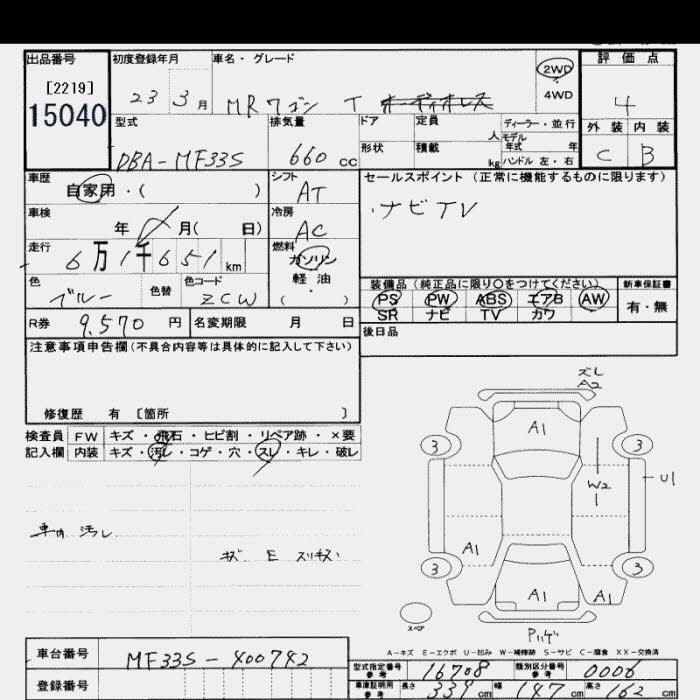 出品番号 初度登録年月 車名・グレード 2WD 4WD 評価点
[2219]
15040
23 3月 MRワゴン T オーディオレス 4
型式 排気量 ドア 定員 人 ディーラー・並行 外装 内装
形状 積載 kg モデル年式 年 ハンドル 左・右
DBA-MF33S 660cc C B
車歴 自家用・( ) シフト AT
セールスポイント (正常に機能するものに限ります)
・ナビTV
車検 年 月( 日) 冷房 AC
走行 6万1千651km 燃料 ガソリン 軽油 ・( )
色 ブルー 色替 色コード ZCW
装備品(純正品に限り○をつけてください) 新車保証書
PS PW ABS エアB AW 有・無
SR ナビ TV カワ
R券 9,570円 名変期限 月 日
後日品
注意事項申告欄(不具合内容等は具体的に記入して下さい)
修復歴 有 [箇所 ]
検査員 FW キズ・飛石・ヒビ割・リペア跡・×要
記入欄 内装 キズ・汚レ・コゲ・穴・スレ・キレ・破レ
ズレ
A2
A1
3 3
W2
U1
A1
3 3
A1 A1
スペア
汚レ
キズ E スリキズ
A-キズ E-エクボ U-凹み W-補修跡 S-サビ C-腐食 XX-交換済
車台番号 MF33S-400742
型式指定番号 参考 16708 類別区分番号 参考 0006
登録番号
車庫証明用 参考 長さ 339cm 幅 147cm 高さ 162cm